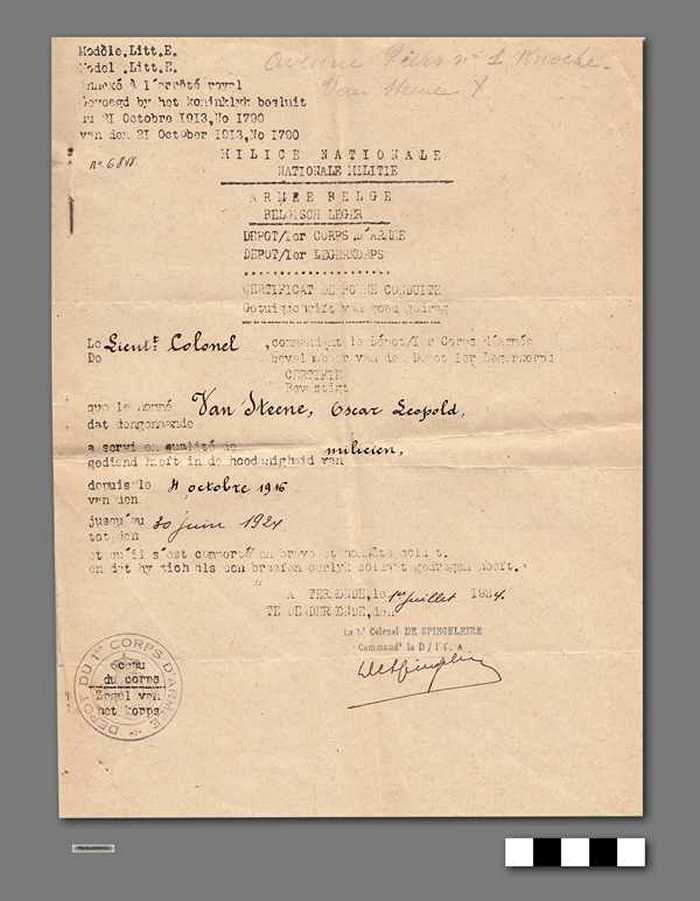 Modèle.Litt.E.
Model .Litt.E.
Annexé à l'arrêté royal
Gevoegd by het koninklyk besluit
du 21 Octobre 1913,No 1700
van den 21 October 1913,No 1700
Avenue n° 1 Knocke.
Van Steene
MILICE NATIONALE
NATIONALE MILITIE
ARMEE BELGE
BELGISCH LEGER
DEPOT/1er CORPS D'ARMEE
DEPOT/1er LEGERKORPS
CERTIFICAT DE BONNE CONDUITE
Getuigschrift van goed gedrag
Le Lieut.t Colonel ,commandant le Dépôt/1er Corps d'armée
De bevelhebber van den Depot 1er Legerkorps
CERTIFIE
Bevestigt
que le nommé Van Steene, Oscar Leopold,
dat dengenaamde
a servi en qualité de milicien,
gediend heeft in de hoedanigheid van
depuis le 4 octobre 1916
van den
jusqu'au 30 juin 1924
tot den
et qu'il s'est comporté en brave et honnête soldat.
en dat hy zich als een braaf en eerlyk soldaat gedragen heeft.
A TERMONDE,le 1er juillet 1924.
TE DENDERMONDE,den
Le Lt Colonel DE SPIEGELEIRE
Command' le D/1 C. A
DEPOT DU 1er CORPS D'ARMEE
Sceau
du corps
Zegel van
het korps